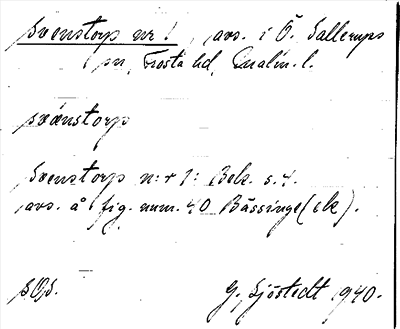 Svenstorp nr 1, avs. i Ö. Sallerups
sn, Frosta hd, Malm. l.
svänstorp
Svenstorp n:r 1: Bek. s. 4.
avs. å fig. num. 40 Bässinge (ek).
SOS.
G. Sjöstedt 1940.